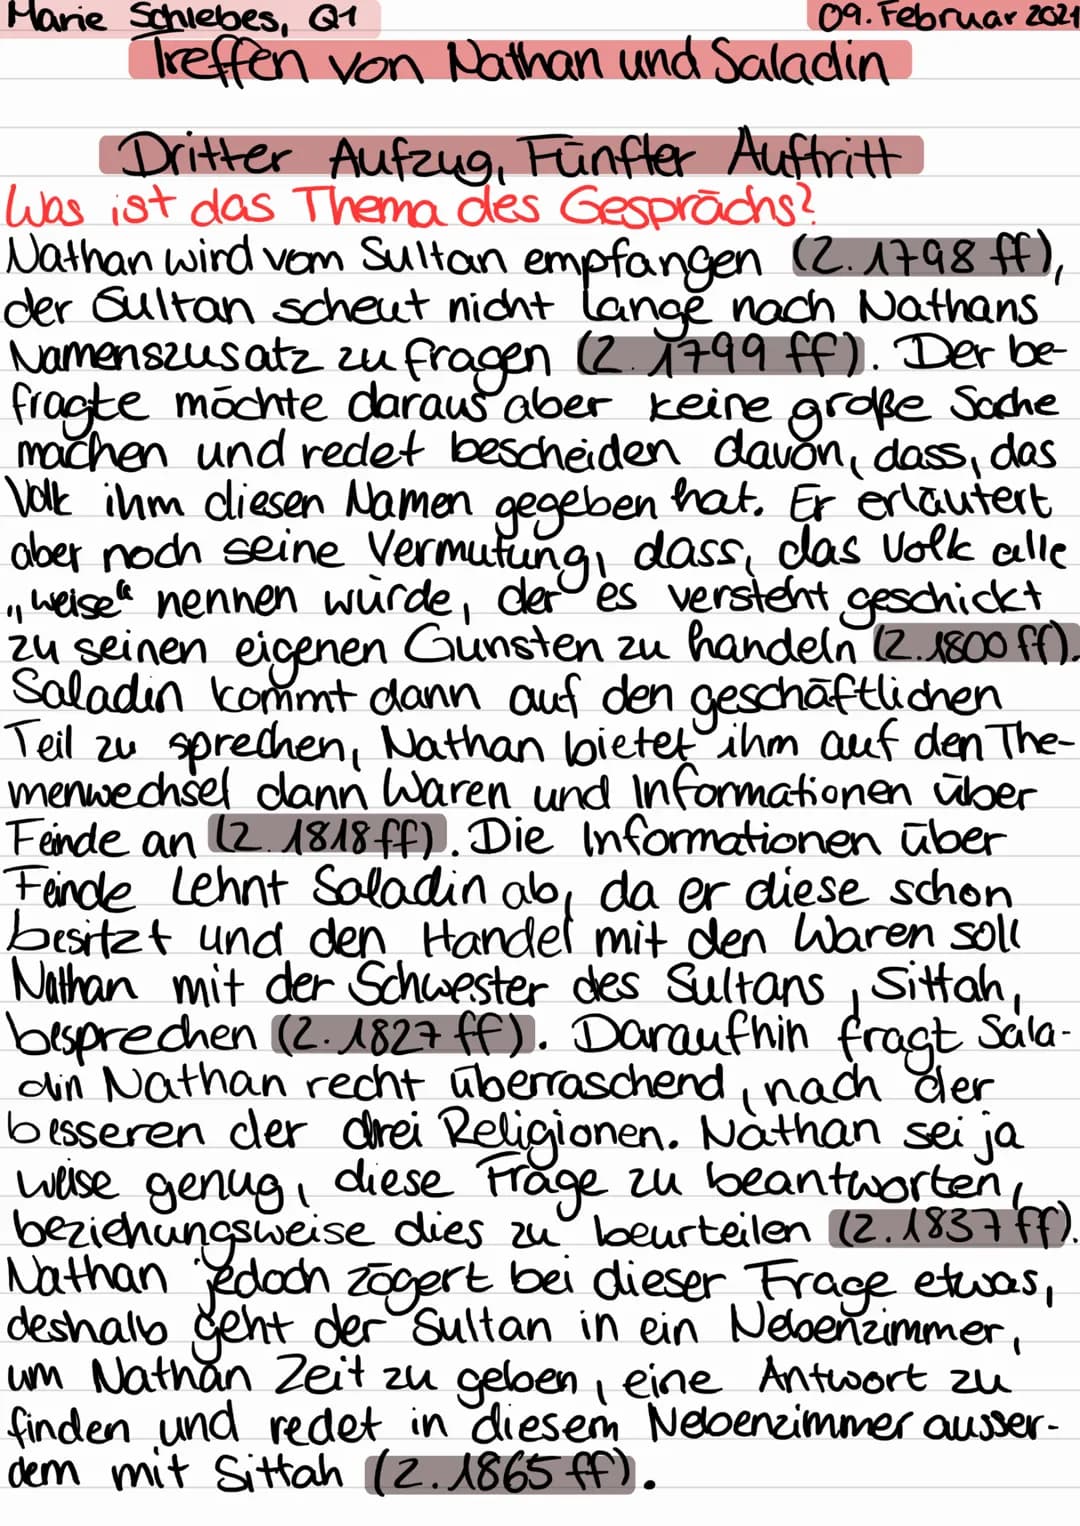 Marie Schlebes, Q1
09. Februar 2021
Treffen von Nathan und Saladin
Dritter Aufzug, Fünfter Auftritt
Was ist das Thema des Gesprächs?
Nathan wird vom Sultan empfangen (Z. 1798 ff),
der Sultan scheut nicht lange nach Nathans
Namenszusatz zu fragen (Z. 1799 ff). Der be-
fragte möchte daraus aber keine große Sache
machen und redet bescheiden davon, dass, das
Volk ihm diesen Namen gegeben hat. Er erläutert
aber noch seine Vermutung, dass, das Volk alle
„weise“ nennen würde, der es versteht geschickt
zu seinen eigenen Gunsten zu handeln (Z. 1800 ff).
Saladin kommt dann auf den geschäftlichen
Teil zu sprechen, Nathan bietet ihm auf den The-
menwechsel dann Waren und Informationen über
Feinde an (Z. 1818 ff). Die Informationen über
Feinde lehnt Saladin ab, da er diese schon
besitzt und den Handel mit den Waren soll
Nathan mit der Schwester des Sultans, Sittah,
besprechen (Z. 1827 ff). Daraufhin fragt Sala-
din Nathan recht überraschend, nach der
besseren der drei Religionen. Nathan sei ja
weise genug, diese Frage zu beantworten,
beziehungsweise dies zu beurteilen (Z. 1837 ff).
Nathan jedoch zögert bei dieser Frage etwas,
deshalb geht der Sultan in ein Nebenzimmer,
um Nathan Zeit zu geben, eine Antwort zu
finden und redet in diesem Nebenzimmer ausser-
dem mit Sittah (Z. 1865 ff).